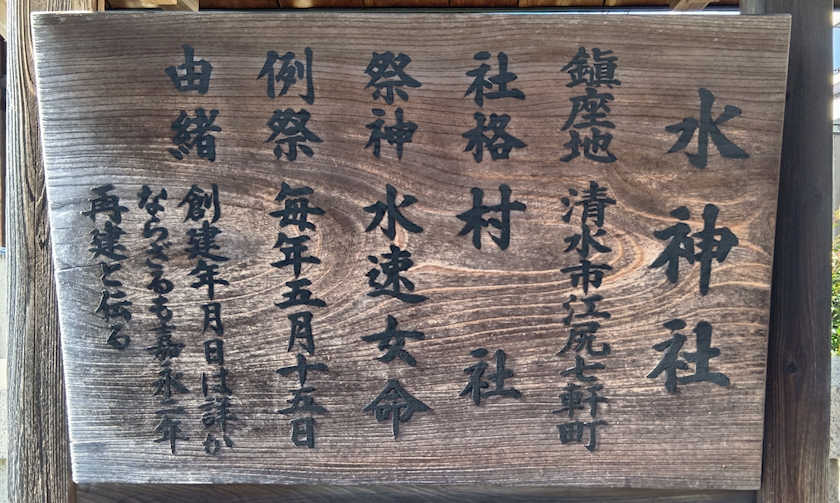 水神社
鎮座地 清水市江尻七軒町
社格 村社
祭神 水速女命
例祭 毎年五月十五日
由緒 創建年月日は詳か
ならざるも嘉永二年
再建と伝る